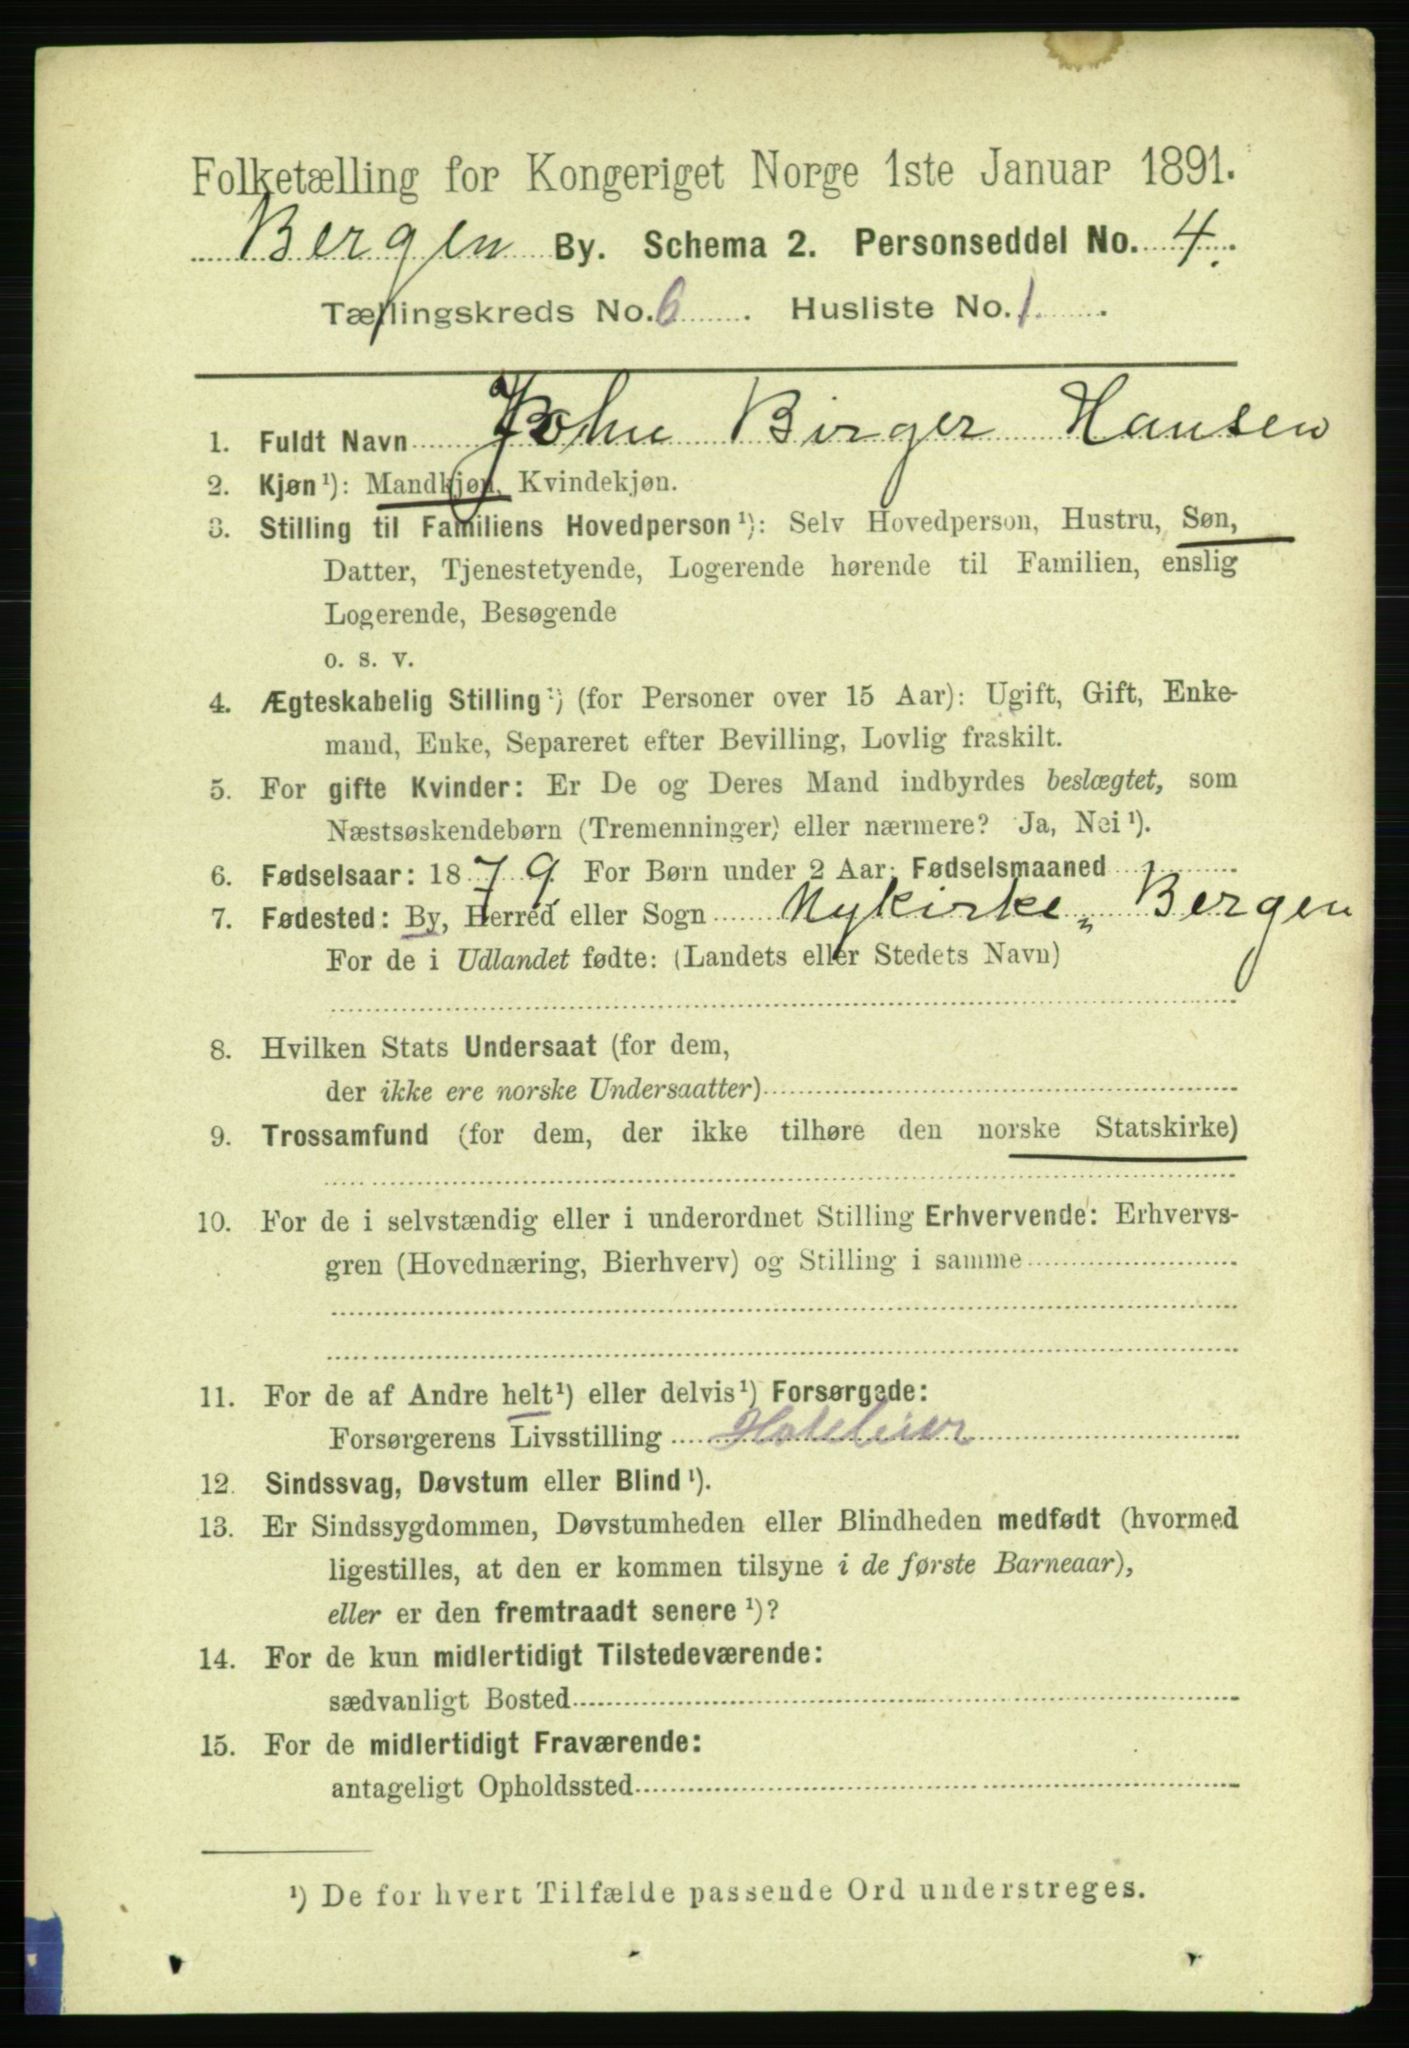 Folketælling for Kongeriget Norge 1ste Januar 1891.
Bergen By. Schema 2. Personseddel No. 4.
Tællingskreds No. 6. Husliste No. 1.
1. Fuldt Navn John Birger Hansen
2. Kjøn¹): Mandkjøn, Kvindekjøn.
3. Stilling til Familiens Hovedperson¹): Selv Hovedperson, Hustru, Søn,
Datter, Tjenestetyende, Logerende hørende til Familien, enslig
Logerende, Besøgende
o. s. v.
4. Ægteskabelig Stilling¹) (for Personer over 15 Aar): Ugift, Gift, Enke-
mand, Enke, Separeret efter Bevilling, Lovlig fraskilt.
5. For gifte Kvinder: Er De og Deres Mand indbyrdes beslægtet, som
Næstsøskendebørn (Tremenninger) eller nærmere? Ja, Nei¹).
6. Fødselsaar: 1879 For Børn under 2 Aar: Fødselsmaaned
7. Fødested: By, Herred eller Sogn Nykirke, Bergen
For de i Udlandet fødte: (Landets eller Stedets Navn)
8. Hvilken Stats Undersaat (for dem,
der ikke ere norske Undersaatter)
9. Trossamfund (for dem, der ikke tilhøre den norske Statskirke)
10. For de i selvstændig eller i underordnet Stilling Erhvervende: Erhvervs-
gren (Hovednæring, Bierhverv) og Stilling i samme
11. For de af Andre helt¹) eller delvis¹) Forsørgede:
Forsørgerens Livsstilling Hoteleier
12. Sindssvag, Døvstum eller Blind¹).
13. Er Sindssygdommen, Døvstumheden eller Blindheden medfødt (hvormed
ligestilles, at den er kommen tilsyne i de første Barneaar),
eller er den fremtraadt senere¹)?
14. For de kun midlertidigt Tilstedeværende:
sædvanligt Bosted
15. For de midlertidigt Fraværende:
antageligt Opholdssted
¹) De for hvert Tilfælde passende Ord understreges.